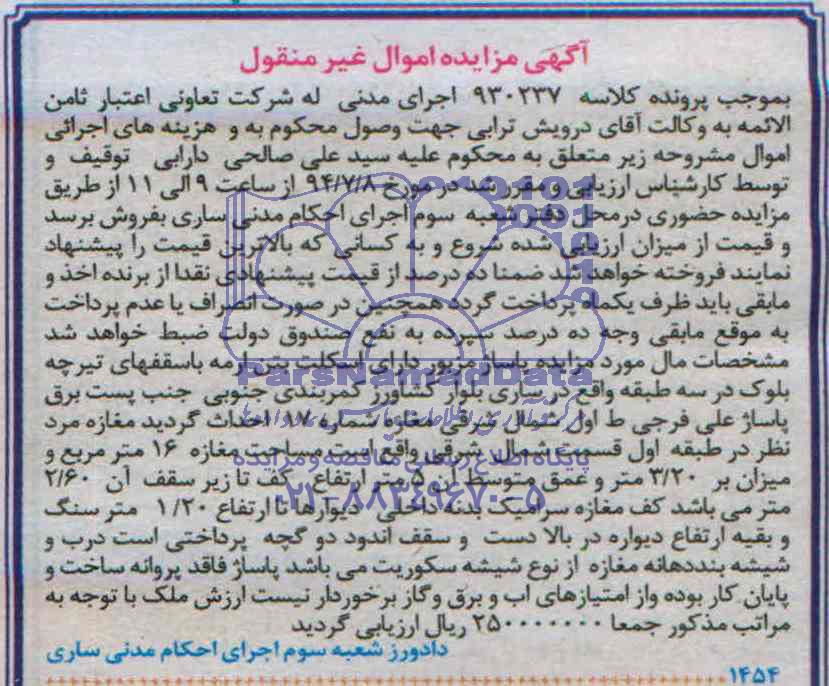 آگهی مزایده اموال غیر منقول
بموجب پرونده کلاسه ۹۳۰۲۳۷ اجرای مدنی له شرکت تعاونی اعتبار ثامن
الائمه به وکالت آقای درویش ترابی جهت وصول محکوم به و هزینه های اجرائی
اموال مشروحه زیر متعلق به محکوم علیه سید علی صالحی دارابی توقیف و
توسط کارشناس ارزیابی و مقرر شد در مورخ ۹۴/۷/۸ از ساعت ۹ الی ۱۱ از طریق
مزایده حضوری درمحل دفتر شعبه سوم اجرای احکام مدنی ساری بفروش برسد
و قیمت از میزان ارزیابی شده شروع و به کسانی که بالاترین قیمت را پیشنهاد
نمایند فروخته خواهد شد ضمنا ده درصد از قیمت پیشنهادی نقدا از برنده اخذ و
مابقی باید ظرف یکماه پرداخت گردد همچنین در صورت انصراف یا عدم پرداخت
به موقع مابقی وجه ده درصد سپرده به نفع صندوق دولت ضبط خواهد شد
مشخصات مال مورد مزایده پاساژ مزبور دارای اسکلت بتن ارمه باسقفهای تیرچه
بلوک در سه طبقه واقع در ساری بلوار کشاورز کمربندی جنوبی جنب پست برق
پاساژ علی فرجی ط اول شمال شرقی مغازه شماره ۱۱۷ احداث گردید مغازه مرد
نظر در طبقه اول قسمت شمال شرقی واقع است مساحت مغازه ۱۶ متر مربع و
میزان بر ۳/۲۰ متر و عمق متوسط آن ۵ متر ارتفاع کف تا زیر سقف آن ۲/۶۰
متر می باشد کف مغازه سرامیک بدنه داخلی دیوارها تا ارتفاع ۱/۲۰ متر سنگ
و بقیه ارتفاع دیواره در بالا دست و سقف اندود دو گچه پرداختی است درب و
شیشه بنددهانه مغازه از نوع شیشه سکوریت می باشد پاساژ فاقد پروانه ساخت و
پایان کار بوده واز امتیازهای اب و برق وگاز برخوردار نیست ارزش ملک با توجه به
مراتب مذکور جمعا ۲۵۰۰۰۰۰۰۰ ریال ارزیابی گردید
دادورز شعبه سوم اجرای احکام مدنی ساری
۱۴۵۴
ParsNamadData
پایگاه اطلاع رسانی مناقصه و مزایده
۰۲۱-۸۸۳۴۹۶۷۰-۵